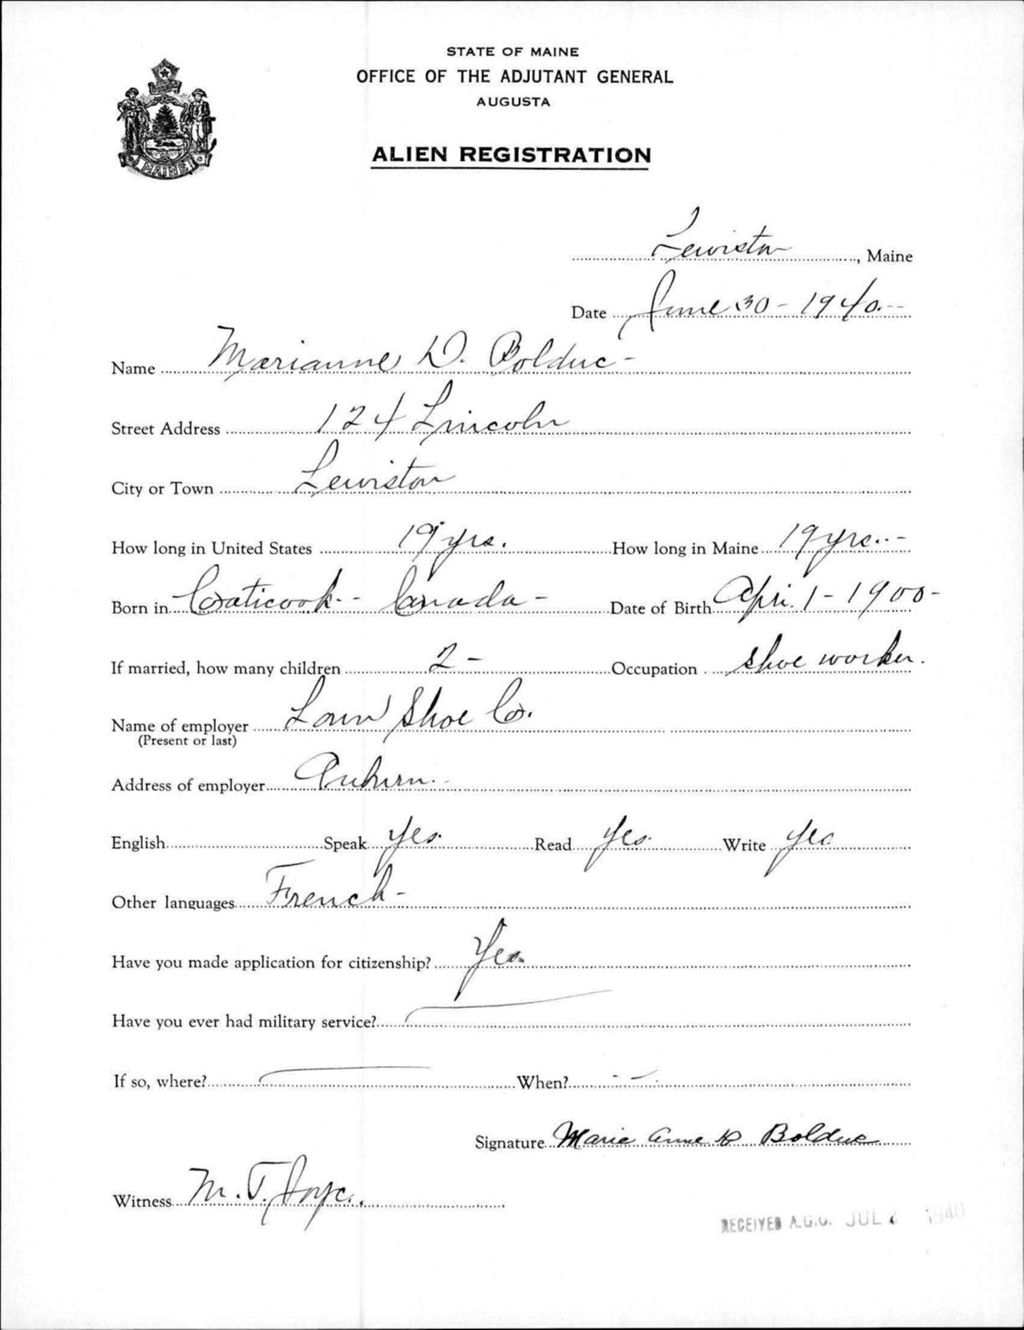 STATE OF MAINE
OFFICE OF THE ADJUTANT GENERAL
AUGUSTA
ALIEN REGISTRATION
MAINE
Lewiston, Maine
Date June 30 - 1940.--
Name Marianne D. Bolduc -
Street Address 124 Lincoln
City or Town Lewiston
How long in United States 19 yrs. How long in Maine 19 yrs.. -
Born in Coaticook - - Canada - Date of Birth Apri. 1 - 1900 -
If married, how many children 2 - Occupation shoe worker.
Name of employer Lown Shoe Co.
(Present or last)
Address of employer Auburn. -
English Speak Yes. Read Yes. Write Yes
Other languages French -
Have you made application for citizenship? Yes.
Have you ever had military service? —
If so, where? — When? - -
Signature Marie Anne D Bolduc
Witness M. T. Joyce.
RECEIVED A.G.O. JUL 2 1940